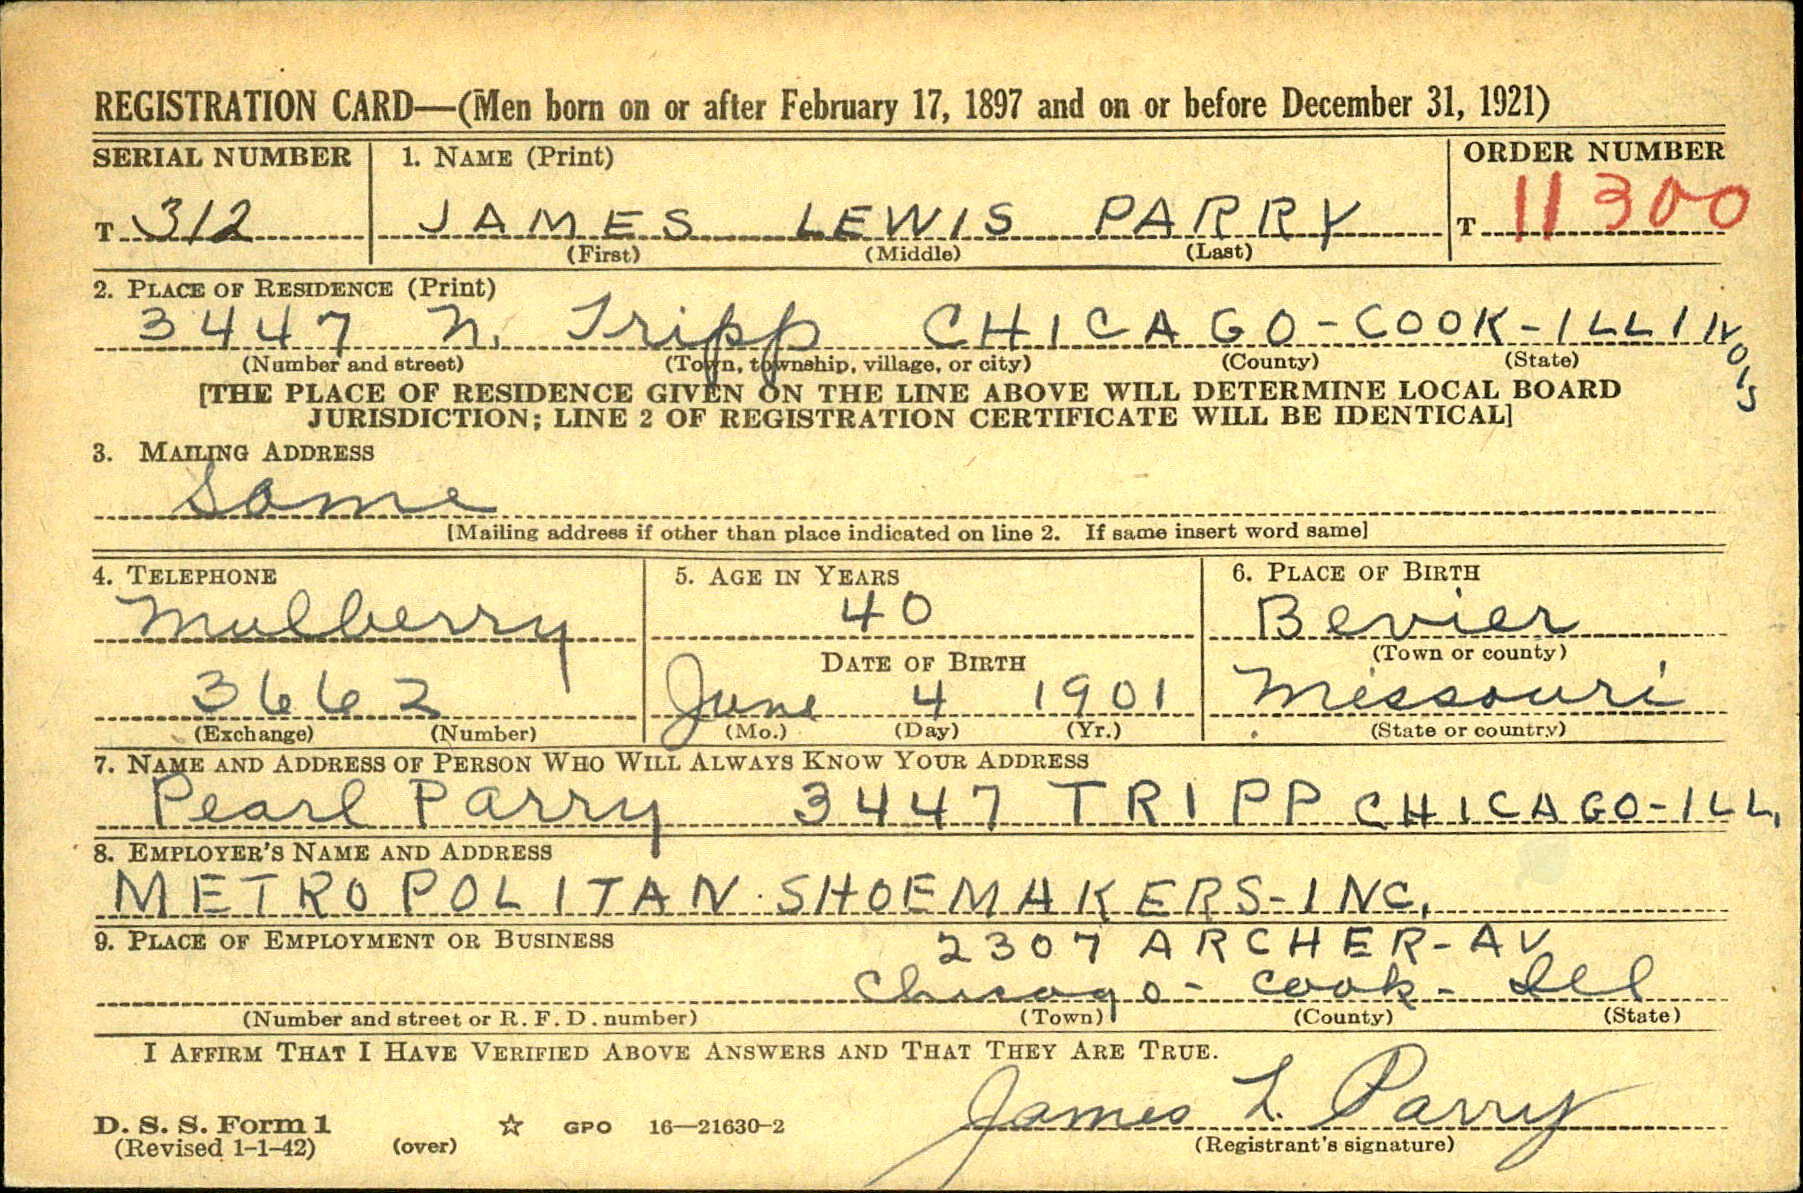 REGISTRATION CARD—(Men born on or after February 17, 1897 and on or before December 31, 1921)
SERIAL NUMBER 1. NAME (Print) ORDER NUMBER
T 312 JAMES LEWIS PARRY T 11300
(First) (Middle) (Last)
2. PLACE OF RESIDENCE (Print)
3447 N. Tripp CHICAGO-COOK-ILLINOIS
(Number and street) (Town, township, village, or city) (County) (State)
[THE PLACE OF RESIDENCE GIVEN ON THE LINE ABOVE WILL DETERMINE LOCAL BOARD
JURISDICTION; LINE 2 OF REGISTRATION CERTIFICATE WILL BE IDENTICAL]
3. MAILING ADDRESS
Same
[Mailing address if other than place indicated on line 2. If same insert word same]
4. TELEPHONE 5. AGE IN YEARS 6. PLACE OF BIRTH
Mulberry 40 Bevier
DATE OF BIRTH (Town or county)
3662 June 4 1901 Missouri
(Exchange) (Number) (Mo.) (Day) (Yr.) (State or country)
7. NAME AND ADDRESS OF PERSON WHO WILL ALWAYS KNOW YOUR ADDRESS
Pearl Parry 3447 TRIPP CHICAGO-ILL.
8. EMPLOYER'S NAME AND ADDRESS
METROPOLITAN SHOEMAKERS-INC.
9. PLACE OF EMPLOYMENT OR BUSINESS 2307 ARCHER-AV
Chicago- Cook- Ill
(Number and street or R. F. D. number) (Town) (County) (State)
I AFFIRM THAT I HAVE VERIFIED ABOVE ANSWERS AND THAT THEY ARE TRUE.
James L. Parry
D. S. S. Form 1 ☆ GPO 16—21630-2
(Revised 1-1-42) (over) (Registrant's signature)